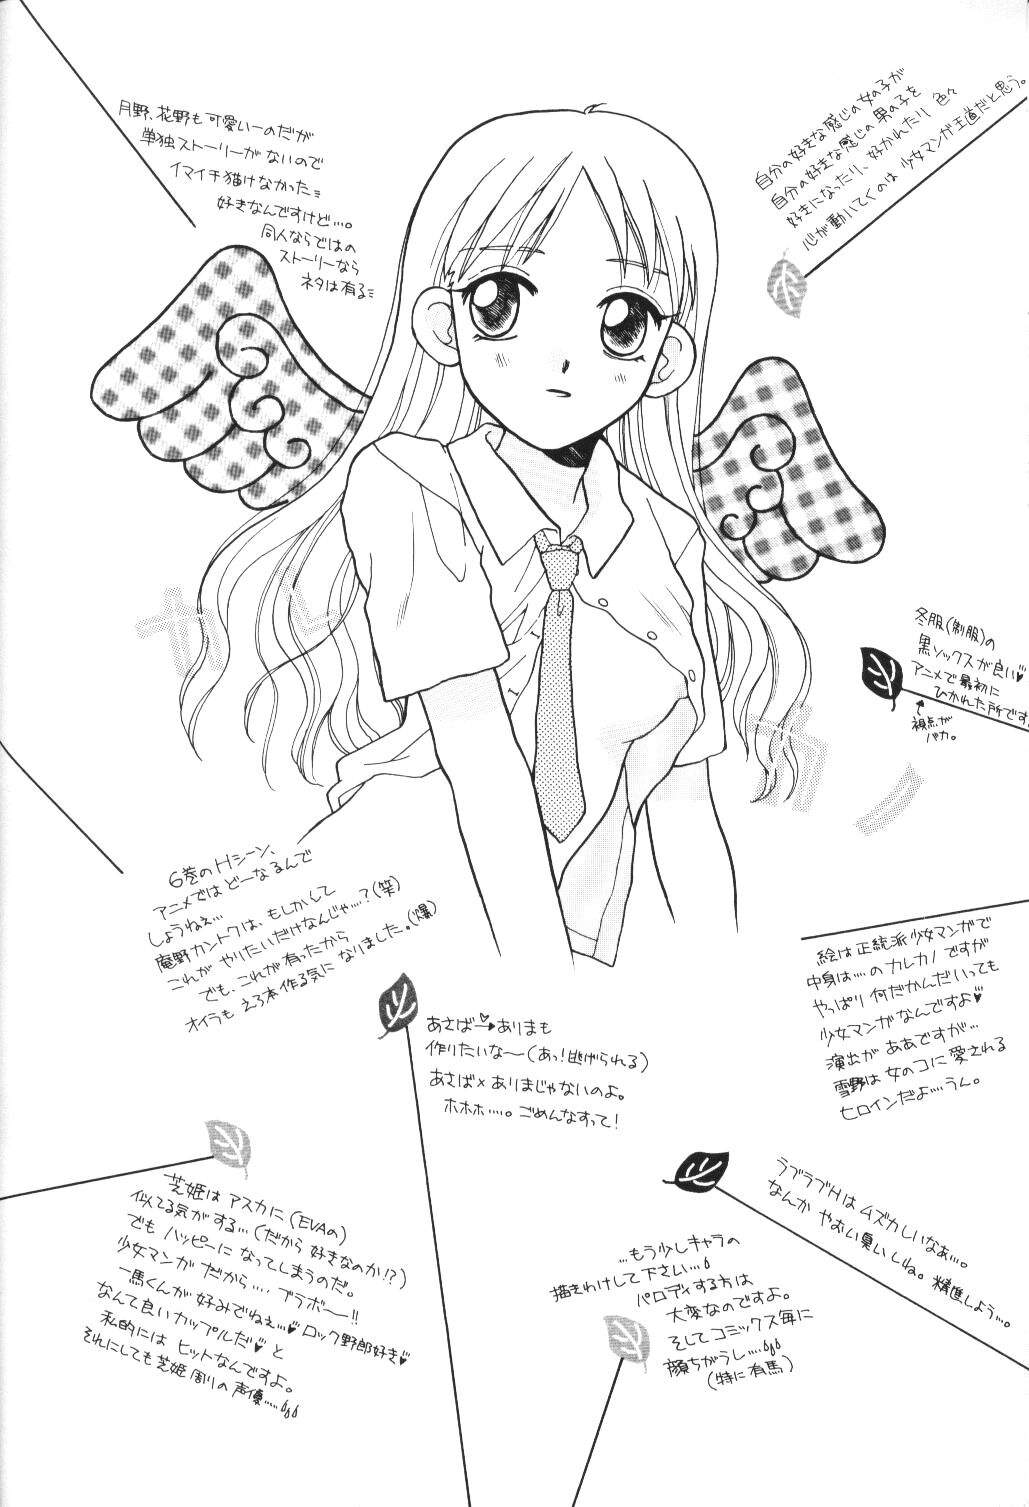 月野、花野も可愛いーのだが
単独ストーリーがないので
イマイチ描けなかった
好きなんですけど…。
同人ならではの
ストーリーなら
ネタは有る
自分の好きな感じの女の子が
自分の好きな感じの男の子を
好きになったり、好かれたり 色々
心が動いてくのは 少女マンガ王道だと思う。
冬服(制服)の
黒ソックスが良い♥
アニメで最初に
ひかれた所です
視点が
バカ。
6巻のHシーン、
アニメではどーなるんで
しょうねぇ…
庵野カントクは、もしかして
これが やりたいだけなんじゃ…?(笑)
でも、これが有ったから
オイラも えろ本作る気に なりました。(爆)
絵は正統派少女マンガで
中身は…のカレカノですが
やっぱり何だかんだいっても
少女マンガなんですよ♥
演出が ああですが…
雪野は 女のコに 愛される
ヒロインだよ…うん。
あさば→ありまも
作りたいな〜(あっ!逃げられる)
あさば×ありまじゃないのよ。
ホホホ…。ごめんなすって!
芝姫は アスカに(EVAの)
似てる気がする…(だから 好きなのか!?)
でも ハッピーに なってしまうのだ。
少女マンガ だから… ブラボー!!
一馬くんが 好みでねぇ…♥ロック野郎好き♥
なんて良いカップルだ♥と
私的には ヒットなんですよ。
それにしても芝姫 周りの 声優…
ラブラブHは ムズカしいなぁ…。
なんか やおい臭いしね。精進しよう…。
…もう少しキャラの
描きわけして下さい…
パロディする方は
大変なのですよ。
そしてコミックス毎に
顔ちがうし…
(特に有馬)